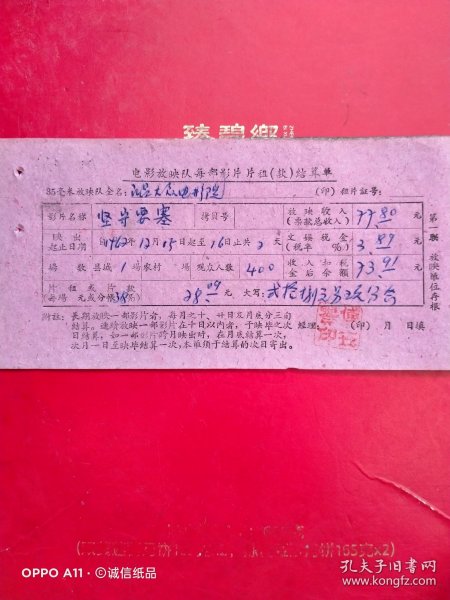 电影放映队每部影片片租(款)结算单
35毫米放映队全名: 大众电影院 (印) 租片证号:
影片名称 坚守要塞 拷贝号 放映收入(票款总收入) 77.80 元
映出起止日期 自1962年12月15日起至16日止共2天 交馈税金(税率5%) 3.89 元
场数 县城1场农村 场 观众人数 400 收入扣税金后余额 73.91 元
片租或片款(每场 元或分帐38%) 28.09 元 大写: 贰拾捌元
第 联 放映单位存根
附注: 长期放映一部影片者,每月之十、廿日及月底分三旬
结算。连续放映一部影片在十日以内者,于映毕之次 经理: (印) 月 日填
日结算,如一部影片跨月映出时,在月底结算一次,
次月一日至映毕结算一次,本联须于结算的次日寄出。
165克x2)
OPPO A11 · ©诚信纸品
孔夫子旧书网
www.kongfz.com